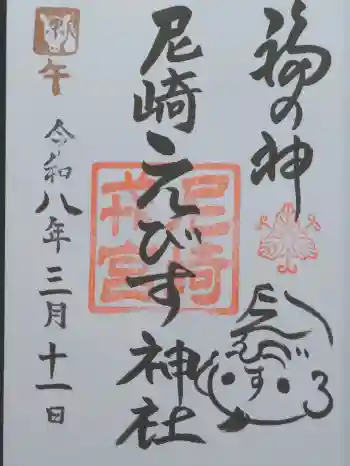 福の神
尼崎えびす神社
尼崎戎宮
えびす
午
令和八年三月十一日